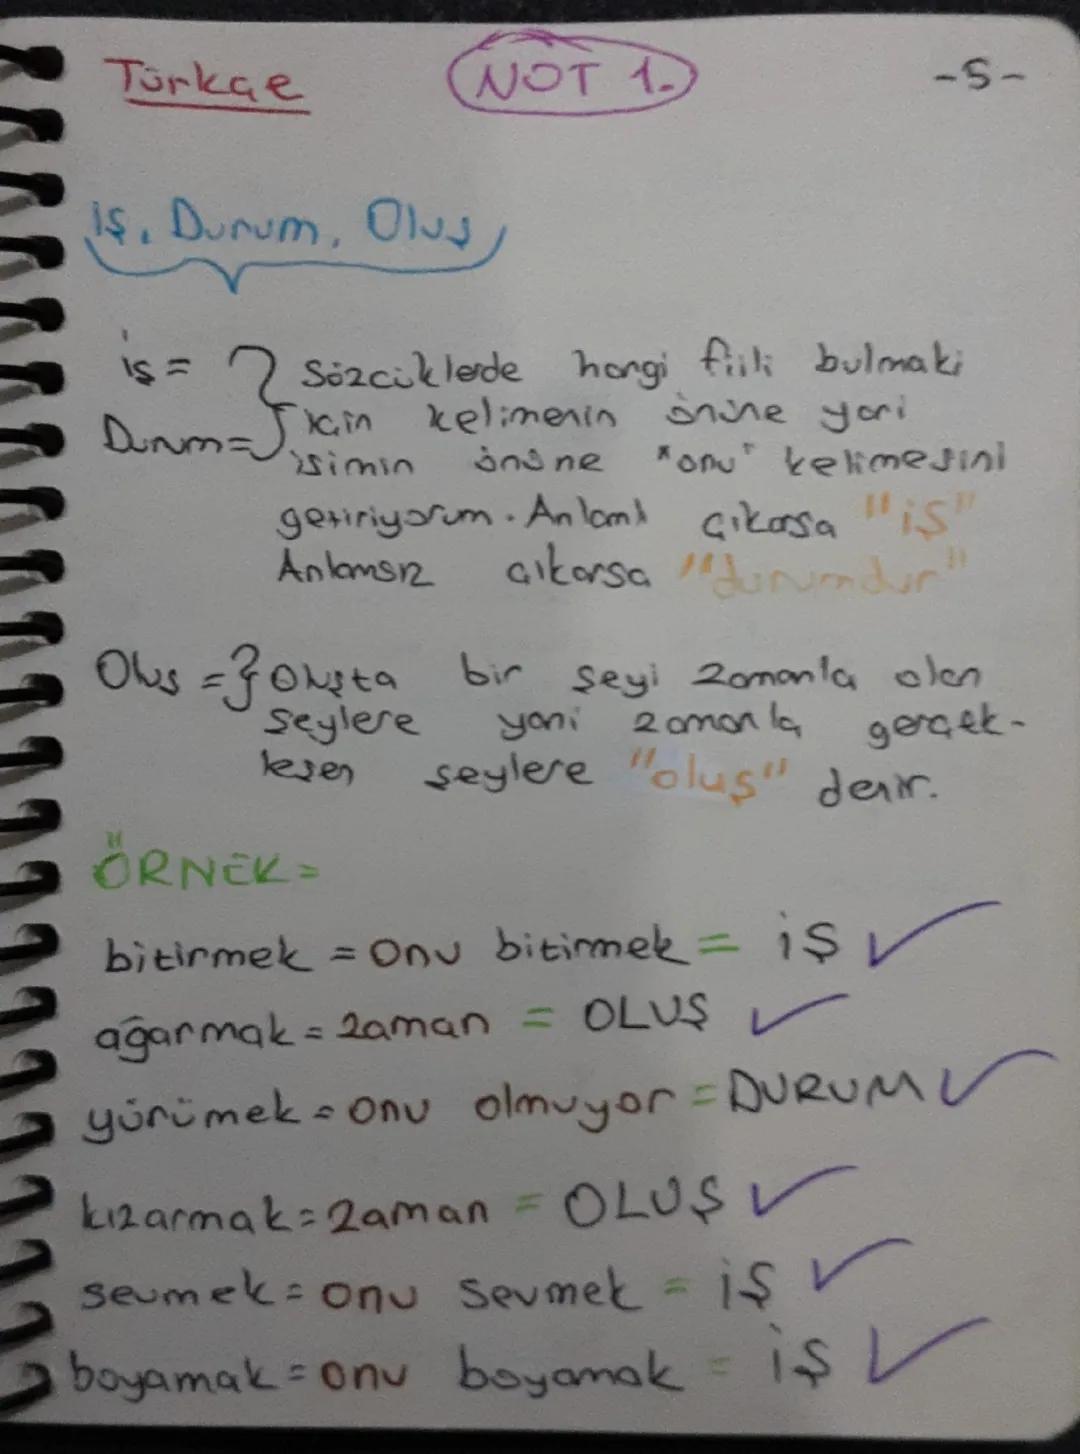 Türkçe NOT 1. -5-
iş, Durum, Oluş
iş = } Sözcüklerde hangi fiili bulmaki
Durum= için kelimenin önüne yani
isimin önüne "onu" kelimesini
getiriyorum. Anlamlı çıkarsa "iş"
Anlamsız çıkarsa "durumdur"
Oluş =} Oluşta bir şeyi zamanla olan
şeylere yani zamanla gerçek-
leşen şeylere "oluş" denir.
ÖRNEK=
bitirmek = Onu bitirmek = iŞ ✓
ağarmak = zaman = OLUŞ ✓
yürümek = onu olmuyor = DURUM ✓
kızarmak = zaman = OLUŞ ✓
sevmek = onu sevmek = iŞ ✓
boyamak = onu boyamak = iŞ ✓